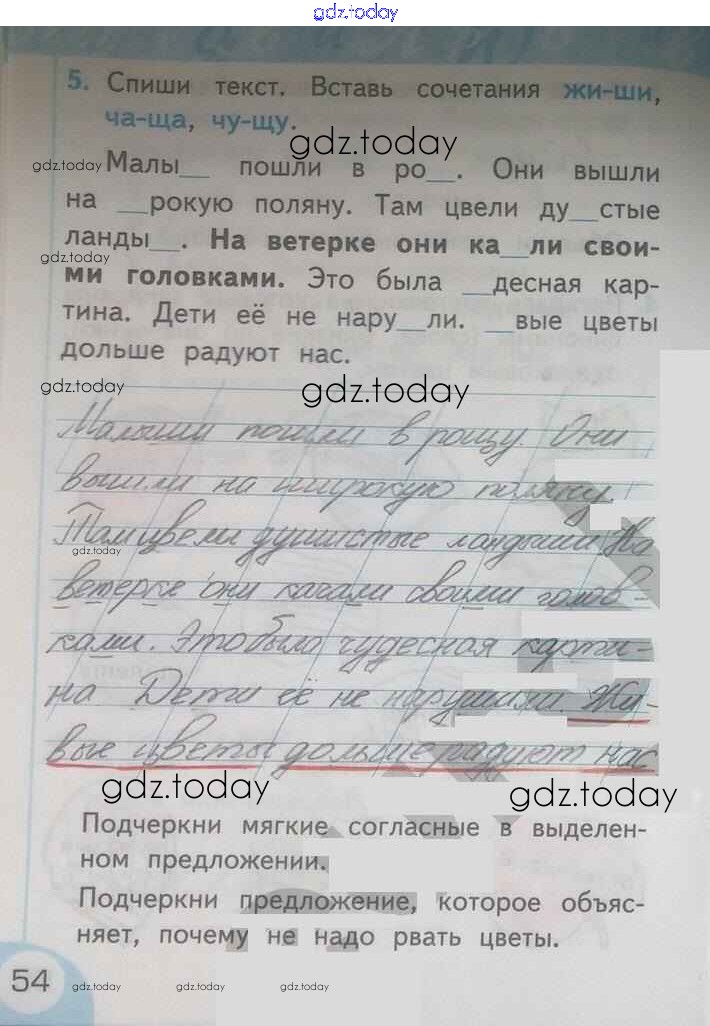 gdz.today
5. Спиши текст. Вставь сочетания жи-ши,
ча-ща, чу-щу.
gdz.today
gdz.today
Малы__ пошли в ро__. Они вышли
на __рокую поляну. Там цвели ду__стые
ланды__. На ветерке они ка__ли свои-
gdz.today
ми головками. Это была __десная кар-
тина. Дети её не нару__ли. __вые цветы
дольше радуют нас.
gdz.today
gdz.today
Малыши пошли в рощу. Они
вышли на широкую поляну.
Там цвели душистые ландыши На
gdz.today
ветерке они качали своими голов-
ками. Это была чудесная карти-
на Дети её не нарушили. Жи-
вые цветы дольше радуют нас
gdz.today
gdz.today
Подчеркни мягкие согласные в выделен-
ном предложении.
Подчеркни предложение, которое объяс-
няет, почему не надо рвать цветы.
54
gdz.today
gdz.today
gdz.today